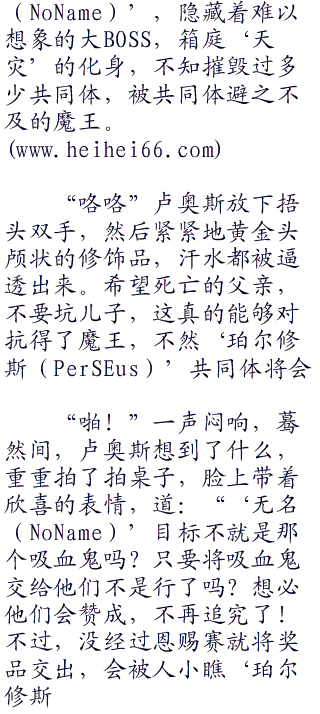 （NoName）’，隐藏着难以
想象的大BOSS，箱庭‘天
灾’的化身，不知摧毁过多
少共同体，被共同体避之不
及的魔王。
(www.heihei66.com)
“咯咯”卢奥斯放下捂
头双手，然后紧紧地黄金头
颅状的修饰品，汗水都被逼
透出来。希望死亡的父亲，
不要坑儿子，这真的能够对
抗得了魔王，不然‘珀尔修
斯（PerSEus）’共同体将会
“啪！”一声闷响，蓦
然间，卢奥斯想到了什么，
重重拍了拍桌子，脸上带着
欣喜的表情，道：“‘无名
（NoName）’目标不就是那
个吸血鬼吗？只要将吸血鬼
交给他们不是行了吗？想必
他们会赞成，不再追究了！
不过，没经过恩赐赛就将奖
品交出，会被人小瞧‘珀尔
修斯